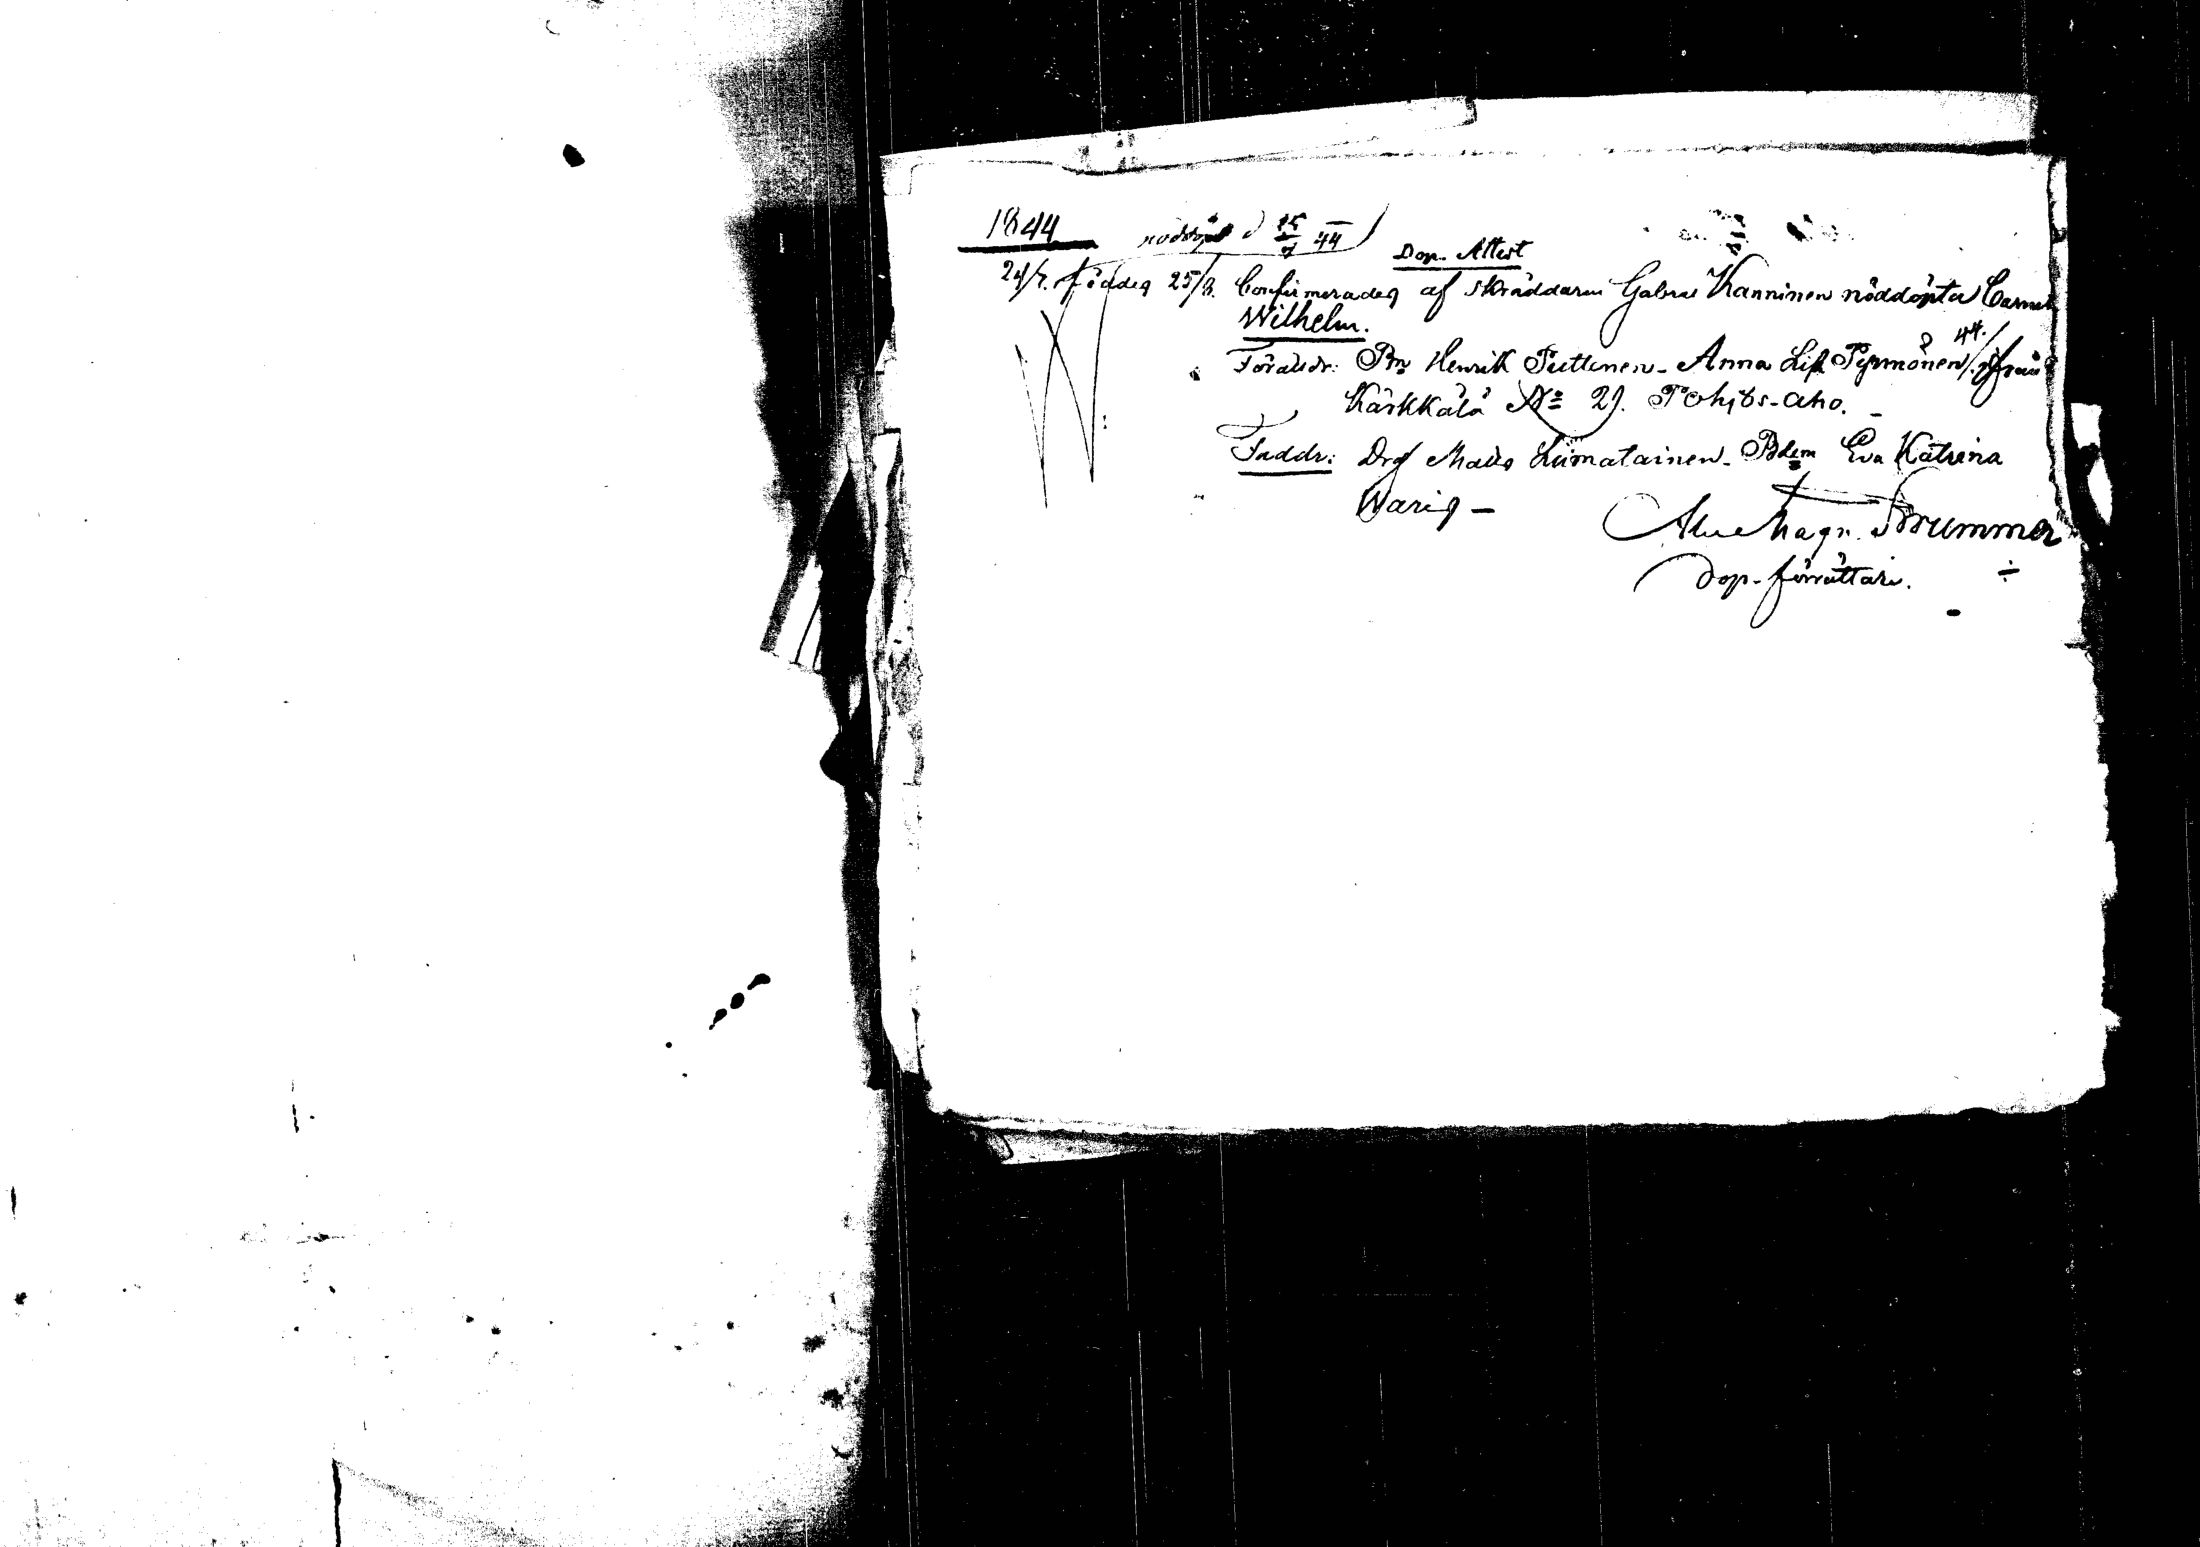 1844 nöddöpt d 25/7 44
Dop-Attest
24/7. föddes 25/8. Confirmerades af skräddaren Gabriel Kanninen nöddöpta
Wilhelm.
Föräldr: Bn Henrik Puttonen - Anna Lisa 44./
Kärkkälä No 21. Pohjos-aho.
Faddr: Drg Matts Liimatainen - Bdem Eva Katrina
Waris -
Magn. Brummer
Dop-förrättare.